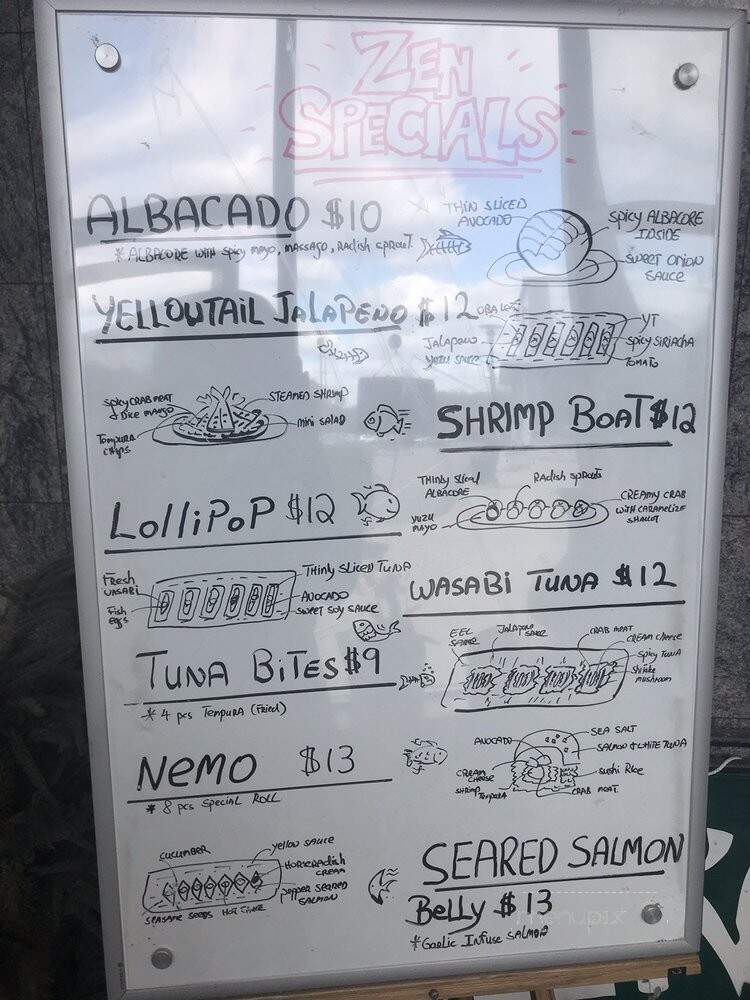 ZEN
SPECIALS
ALBACADO $10
* ALBACORE WITH SPICY MAYO, MASSAGO, RADISH SPROUT
THIN SLICED
AVOCADO
SPICY ALBACORE
INSIDE
SWEET ONION
SAUCE
YELLOWTAIL JALAPENO $12
JALAPENO
YUZU SAUCE
YT
SPICY SIRIACHA
TOMATO
SPICY CRAB MEAT
& DICE MANGO
TEMPURA
CHIPS
STEAMED SHRIMP
MINI SALAD
SHRIMP BOAT $12
LOLLIPOP $12
THINLY SLICED
ALBACORE
RADISH SPROUTS
YUZU
MAYO
CREAMY CRAB
WITH CARAMELIZE
SHALLOT
FRESH
WASABI
FISH
EGGS
THINLY SLICED TUNA
AVOCADO
SWEET SOY SAUCE
WASABI TUNA $12
TUNA BITES $9
* 4 PCS TEMPURA (FRIED)
EEL
SAUCE
JALAPENO
SAUCE
CRAB MEAT
CREAM CHEESE
SPICY TUNA
SHIITAKE
MUSHROOM
NEMO $13
* 8 PCS SPECIAL ROLL
AVOCADO
CREAM
CHEESE
SHRIMP
TEMPURA
SEA SALT
SALMON & WHITE TUNA
SUSHI RICE
CRAB MEAT
CUCUMBER
YELLOW SAUCE
HORSERADISH
CREAM
PEPPER SEARED
SALMON
SEASAME SEEDS
SEARED SALMON
BELLY $13
* GARLIC INFUSE SALMON
menupix